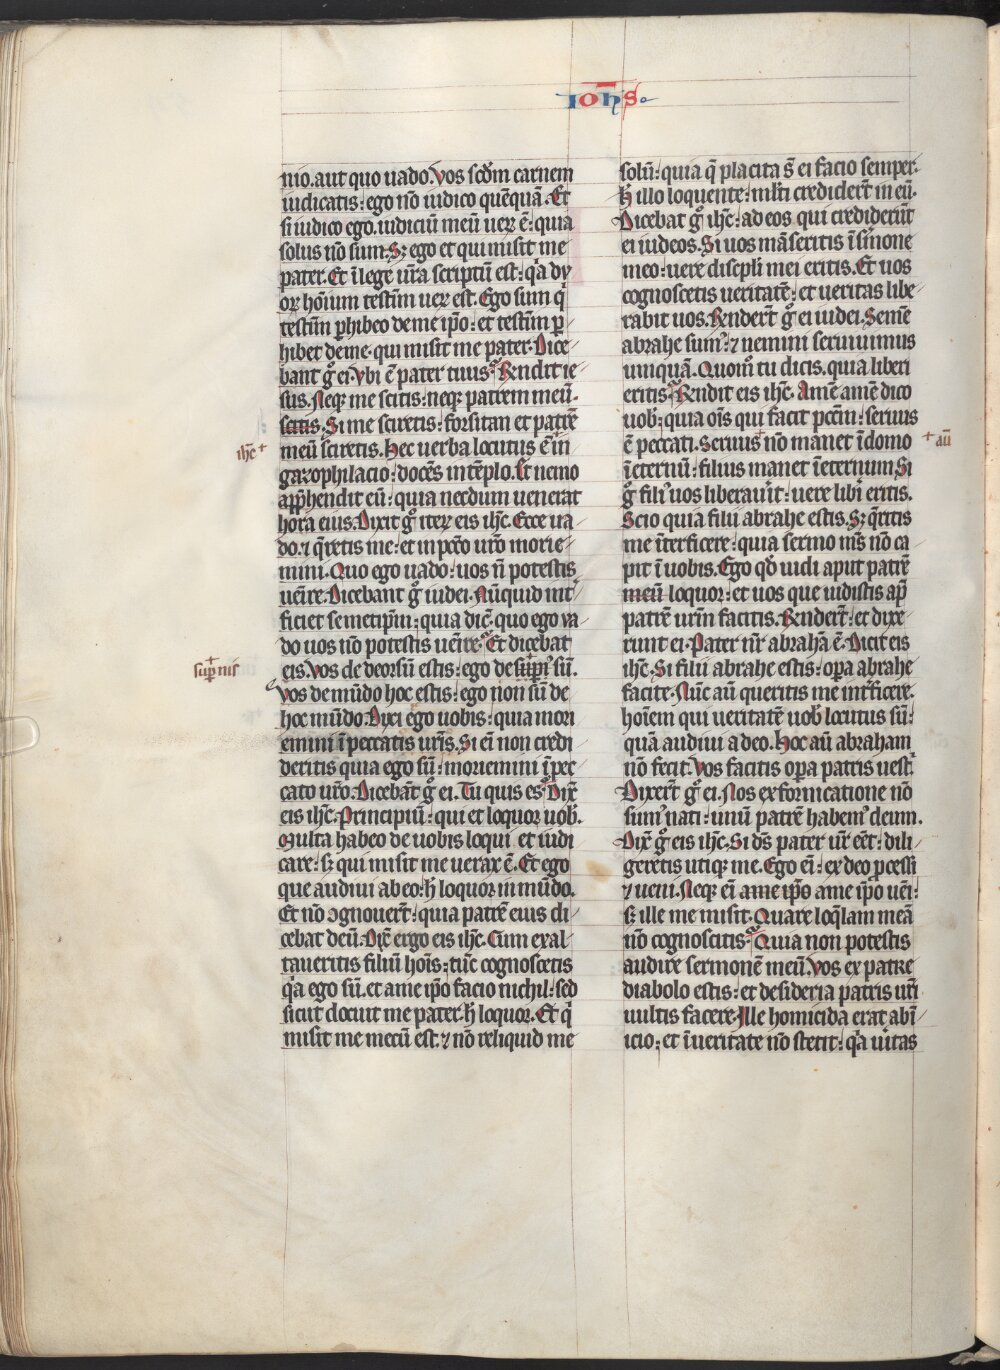 Ioh̅s
nio. aut quo uado. Vos scd̅m carnem
iudicatis: ego no̅ iudico que̅qua̅. Et
si iudico ego. iudiciu̅ meu̅ ueꝝ e̅: quia
solus no̅ sum. Sꝫ ego et qui misit me
pater. Et i̅ lege ur̅a scriptu̅ est: qͥa du
oꝝ ho̅ium testi̅m ueꝝ est. Ego sum qͥ
testi̅m ꝑhibeo de me ip̅o: et testi̅m ꝑ
hibet de me. qui misit me pater. Dice
bant gͦ ei. Vbi e̅ pater tuus? Rn̅dit ie
sus. Neqꝫ me scitis: neqꝫ patrem meu̅.
scitis. Si me sciretis: forsitan et patre̅
meu̅ sciretis. Hec uerba locutus e̅ in
ih̅c +
gazophilacio: doce̅s in te̅plo. Et nemo
app̅hendit eu̅: quia necdum uenerat
hora eius. Dixit gͦ iteꝝ eis ih̅c. Ecce ua
do. ⁊ q̅retis me: et in pcc̅o ur̅o morie
mini. Quo ego uado: uos n̅ potestis
ue̅ire. Dicebant gͦ iudei. Nu̅quid int̅
ficiet semetip̅m: quia dic̅. quo ego ua
do uos no̅ potestis ue̅ire? Et dicebat
eis. Vos de deorsu̅ estis: ego de sup̅pi̅ su̅.
+ sup̅nis
Vos de mu̅do hoc estis: ego non su̅ de
hoc mu̅do. Dixi ego uobis: quia mori
emini i̅ peccatis ur̅is. Si ei̅ non credi
deritis quia ego su̅: moriemini i̅ pec
cato ur̅o. Diceba̅t gͦ ei. Tu quis es? Dix̅
eis ih̅c. Principiu̅: qui et loquor uob̅.
Multa habeo de uobis loqui et iudi
care: sꝫ qui misit me uerax e̅. Et ego
que audiui ab eo: h̅ loquor in mu̅do.
Et no̅ ꝯgnouer̅t: quia patre̅ eius di
cebat deu̅. Dix̅ ergo eis ih̅c. Cum exal
taueritis filiu̅ ho̅is: tu̅c cognoscetis
qͥa ego su̅. et a me ip̅o facio nichil: sed
sicut docuit me pater. h̅ loquor. Et qͥ
misit me mecu̅ est. ⁊ no̅ reliquid me
solu̅: quia q̅ placita s̅ ei facio semper.
H̅ illo loquente: ml̅ti credider̅t in eu̅.
Dicebat gͦ ih̅c: ad eos qui credideru̅t
ei iudeos. Si uos ma̅seritis i̅ s̅mone
meo: uere discipl̅i mei eritis. Et uos
cognoscetis ueritate̅: et ueritas libe
rabit uos. Rn̅der̅t gͦ ei iudei. Seme̅
abrahe sumꝰ: ⁊ nemini seruiuimus
unqua̅. Quom̅ tu dicis. quia liberi
eritis? Rn̅dit eis ih̅c. Ame̅ ame̅ dico
uob̅: quia o̅is qui facit pcc̅m: seruus
e̅ peccati. Seruus no̅ manet i̅ domo
+ au̅
i̅ eternu̅: filius manet i̅ eternum. Si
gͦ filiꝰ uos liberau̅it: uere libi̅ eritis.
Scio quia filii abrahe estis. Sꝫ q̅ritis
me i̅terficere: quia sermo mꝰs no̅ ca
pit i̅ uobis. Ego qd̅ uidi aput patre̅
meu̅ loquor: et uos que uidistis ap̅
patre̅ ur̅m facitis. Rn̅der̅t: et dixe
runt ei. Pater nr̅ abraha̅ e̅. Dicit eis
ih̅c. Si filii abrahe estis: oꝑa abrahe
facite. Nu̅c au̅ queritis me int̅ficere.
hoi̅em qui ueritate̅ uob̅ locutus su̅:
qua̅ audiui a deo. Hoc au̅ abraham
no̅ fecit. Vos facitis oꝑa patris uest̅.
Dixer̅t gͦ ei. Nos ex fornicatione no̅
sumꝰ nati: unu̅ patre̅ habemꝰ deum.
Dix̅ gͦ eis ih̅c. Si d̅s pater ur̅ e̅et: dili
geretis utiqꝫ me. Ego ei̅: ex deo ꝓcessi
⁊ ueni. Neqꝫ ei̅ a me ip̅o a me ip̅o ue̅i:
sꝫ ille me misit. Quare loq̅lam mea̅
no̅ cognoscitis? Quia non potestis
audire sermone̅ meu̅. Vos ex patre
diabolo estis: et desideria patris ur̅i
uultis facere. Ille homicida erat ab i̅
icio: et i̅ ueritate no̅ stetit: qͥa u̅itas